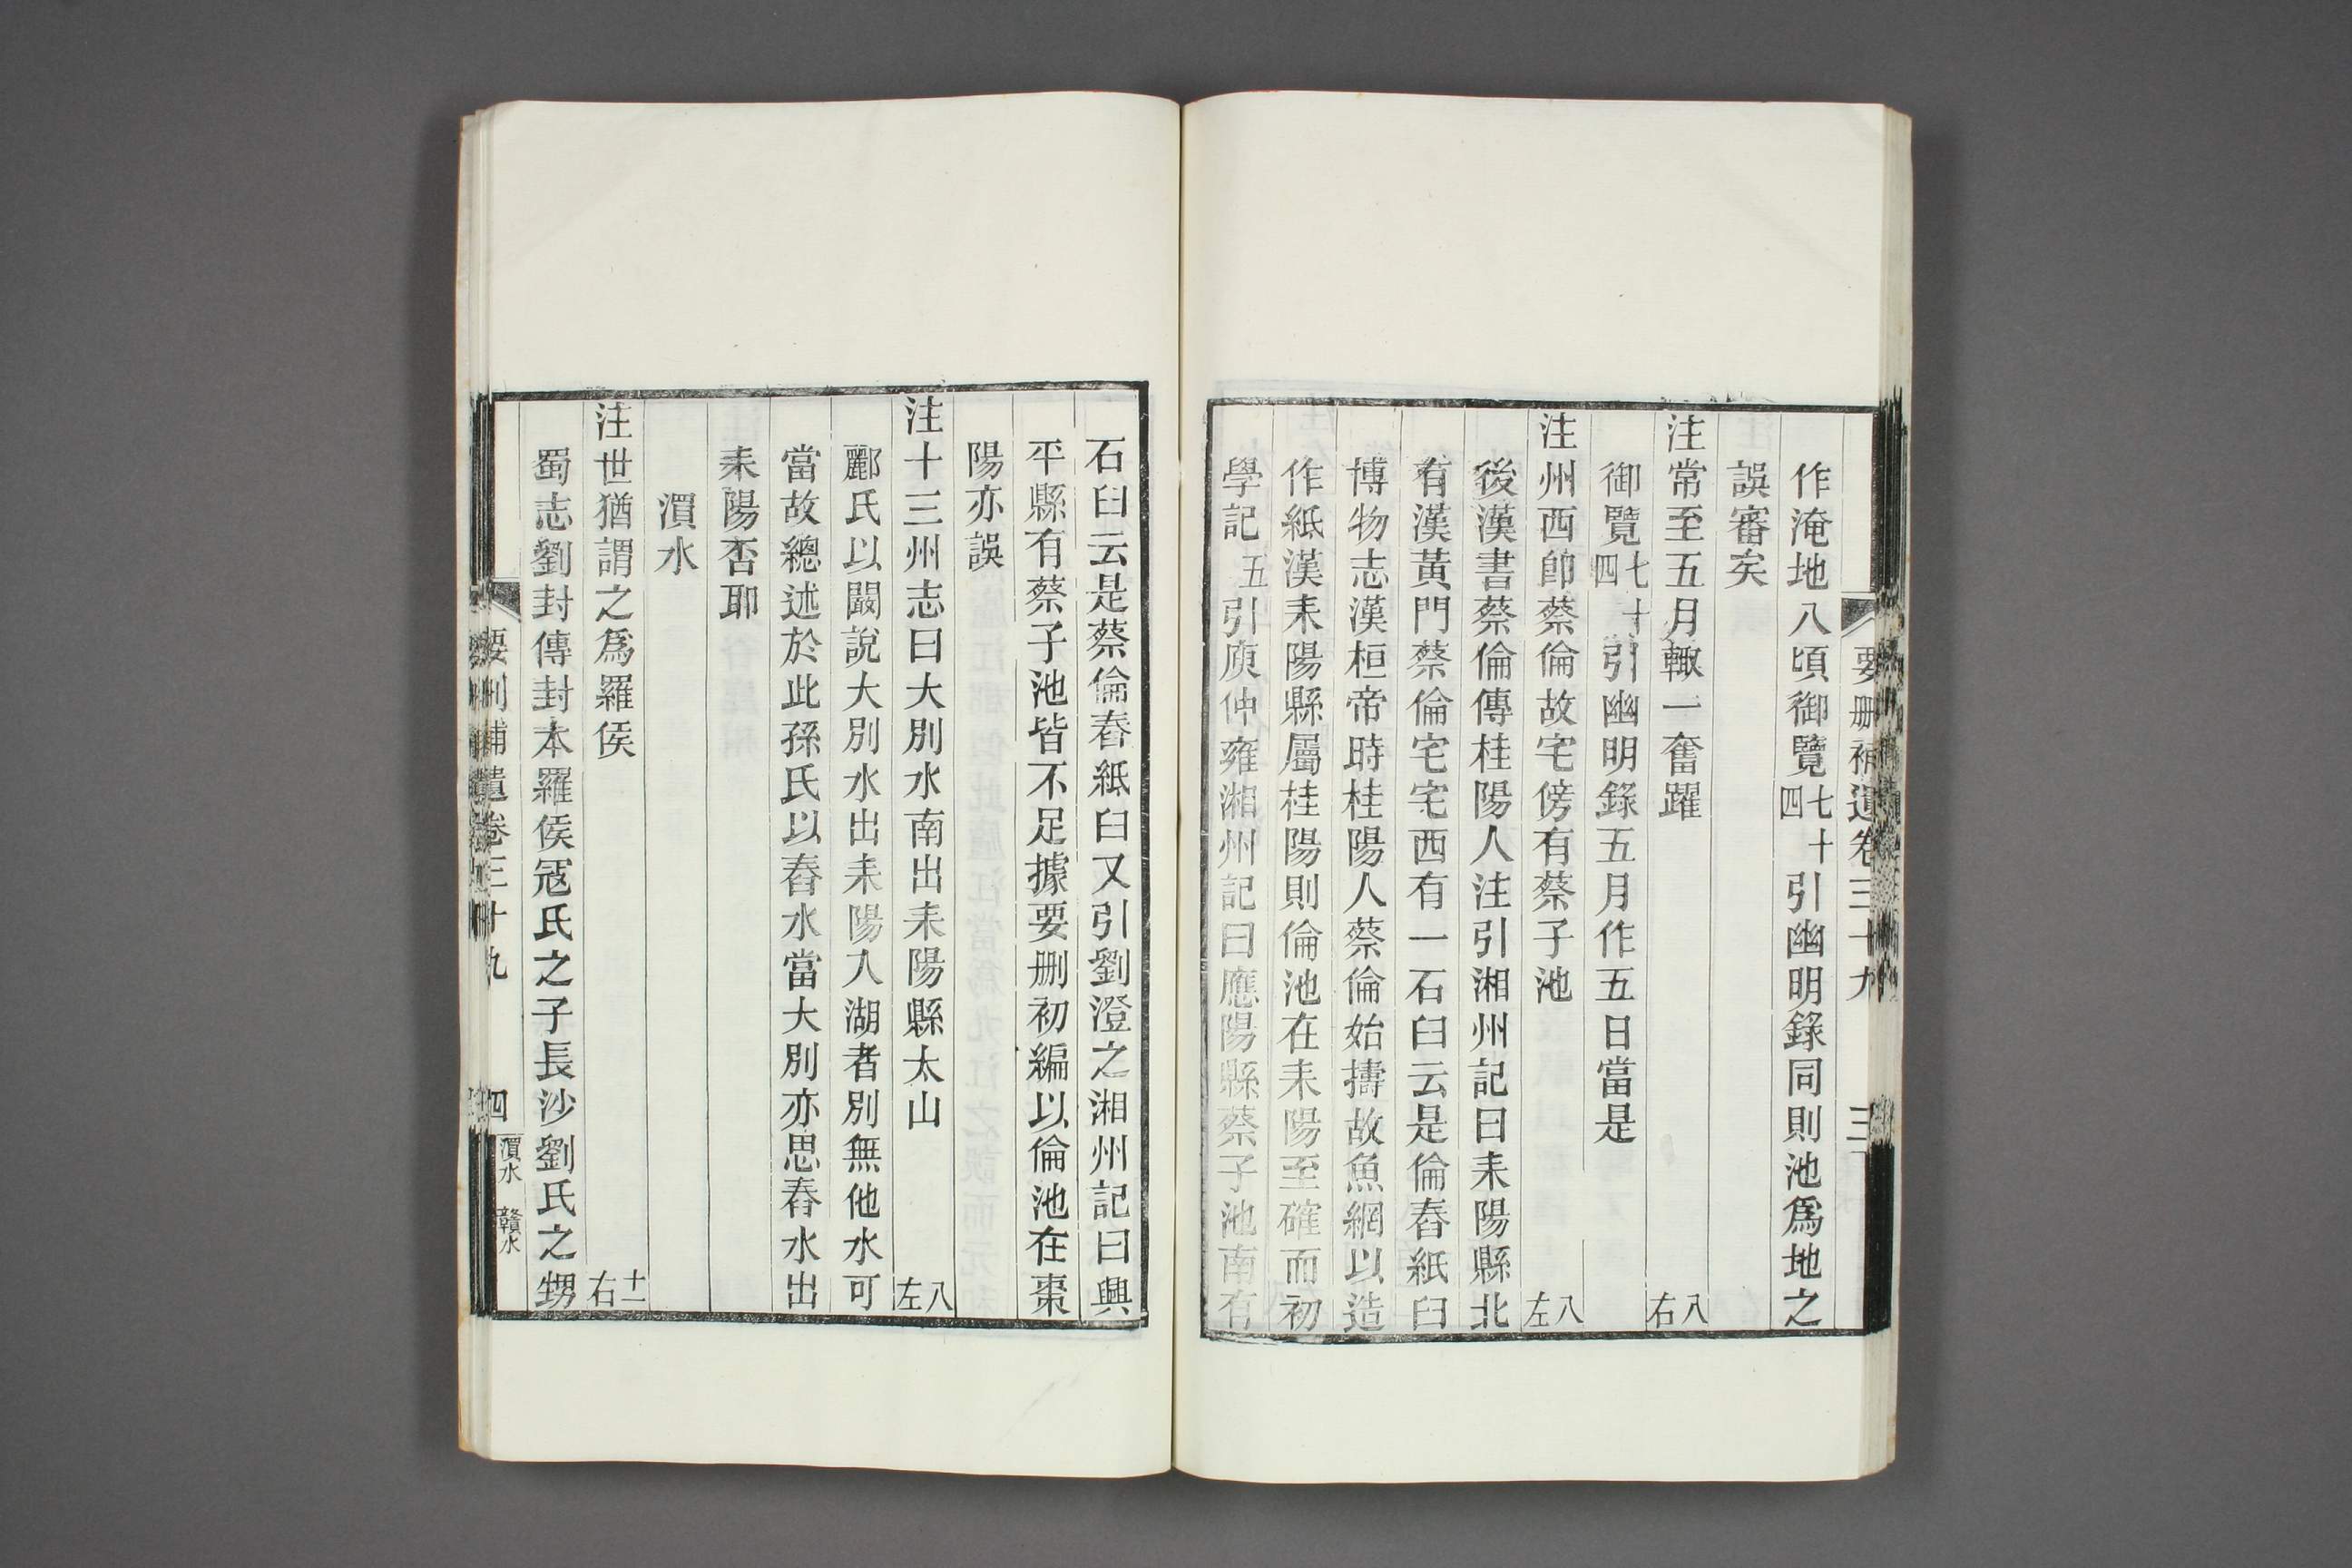 要删補遺卷三十九 三
作淹地八頃御覽七十四引幽明錄同則池爲地之
誤審矣
注常至五月輙一奮躍 八右
御覽七十四引幽明錄五月作五日當是
注州西卽蔡倫故宅傍有蔡子池 八左
後漢書蔡倫傳桂陽人注引湘州記曰耒陽縣北
有漢黃門蔡倫宅宅西有一石臼云是倫舂紙臼
博物志漢桓帝時桂陽人蔡倫始擣故魚網以造
作紙漢耒陽縣屬桂陽則倫池在耒陽至確而初
學記五引庾仲雍湘州記曰應陽縣蔡子池南有
石臼云是蔡倫舂紙臼又引劉澄之湘州記曰興
平縣有蔡子池皆不足據要删初編以倫池在棗
陽亦誤
注十三州志曰大別水南出耒陽縣太山 八左
酈氏以闞說大別水出耒陽入湖者別無他水可
當故總述於此孫氏以舂水當大別亦思舂水出
耒陽否耶
湞水
注世猶謂之爲羅侯 十一右
蜀志劉封傳封本羅侯寇氏之子長沙劉氏之甥
要刪補遺卷三十九 四 湞水 贛水